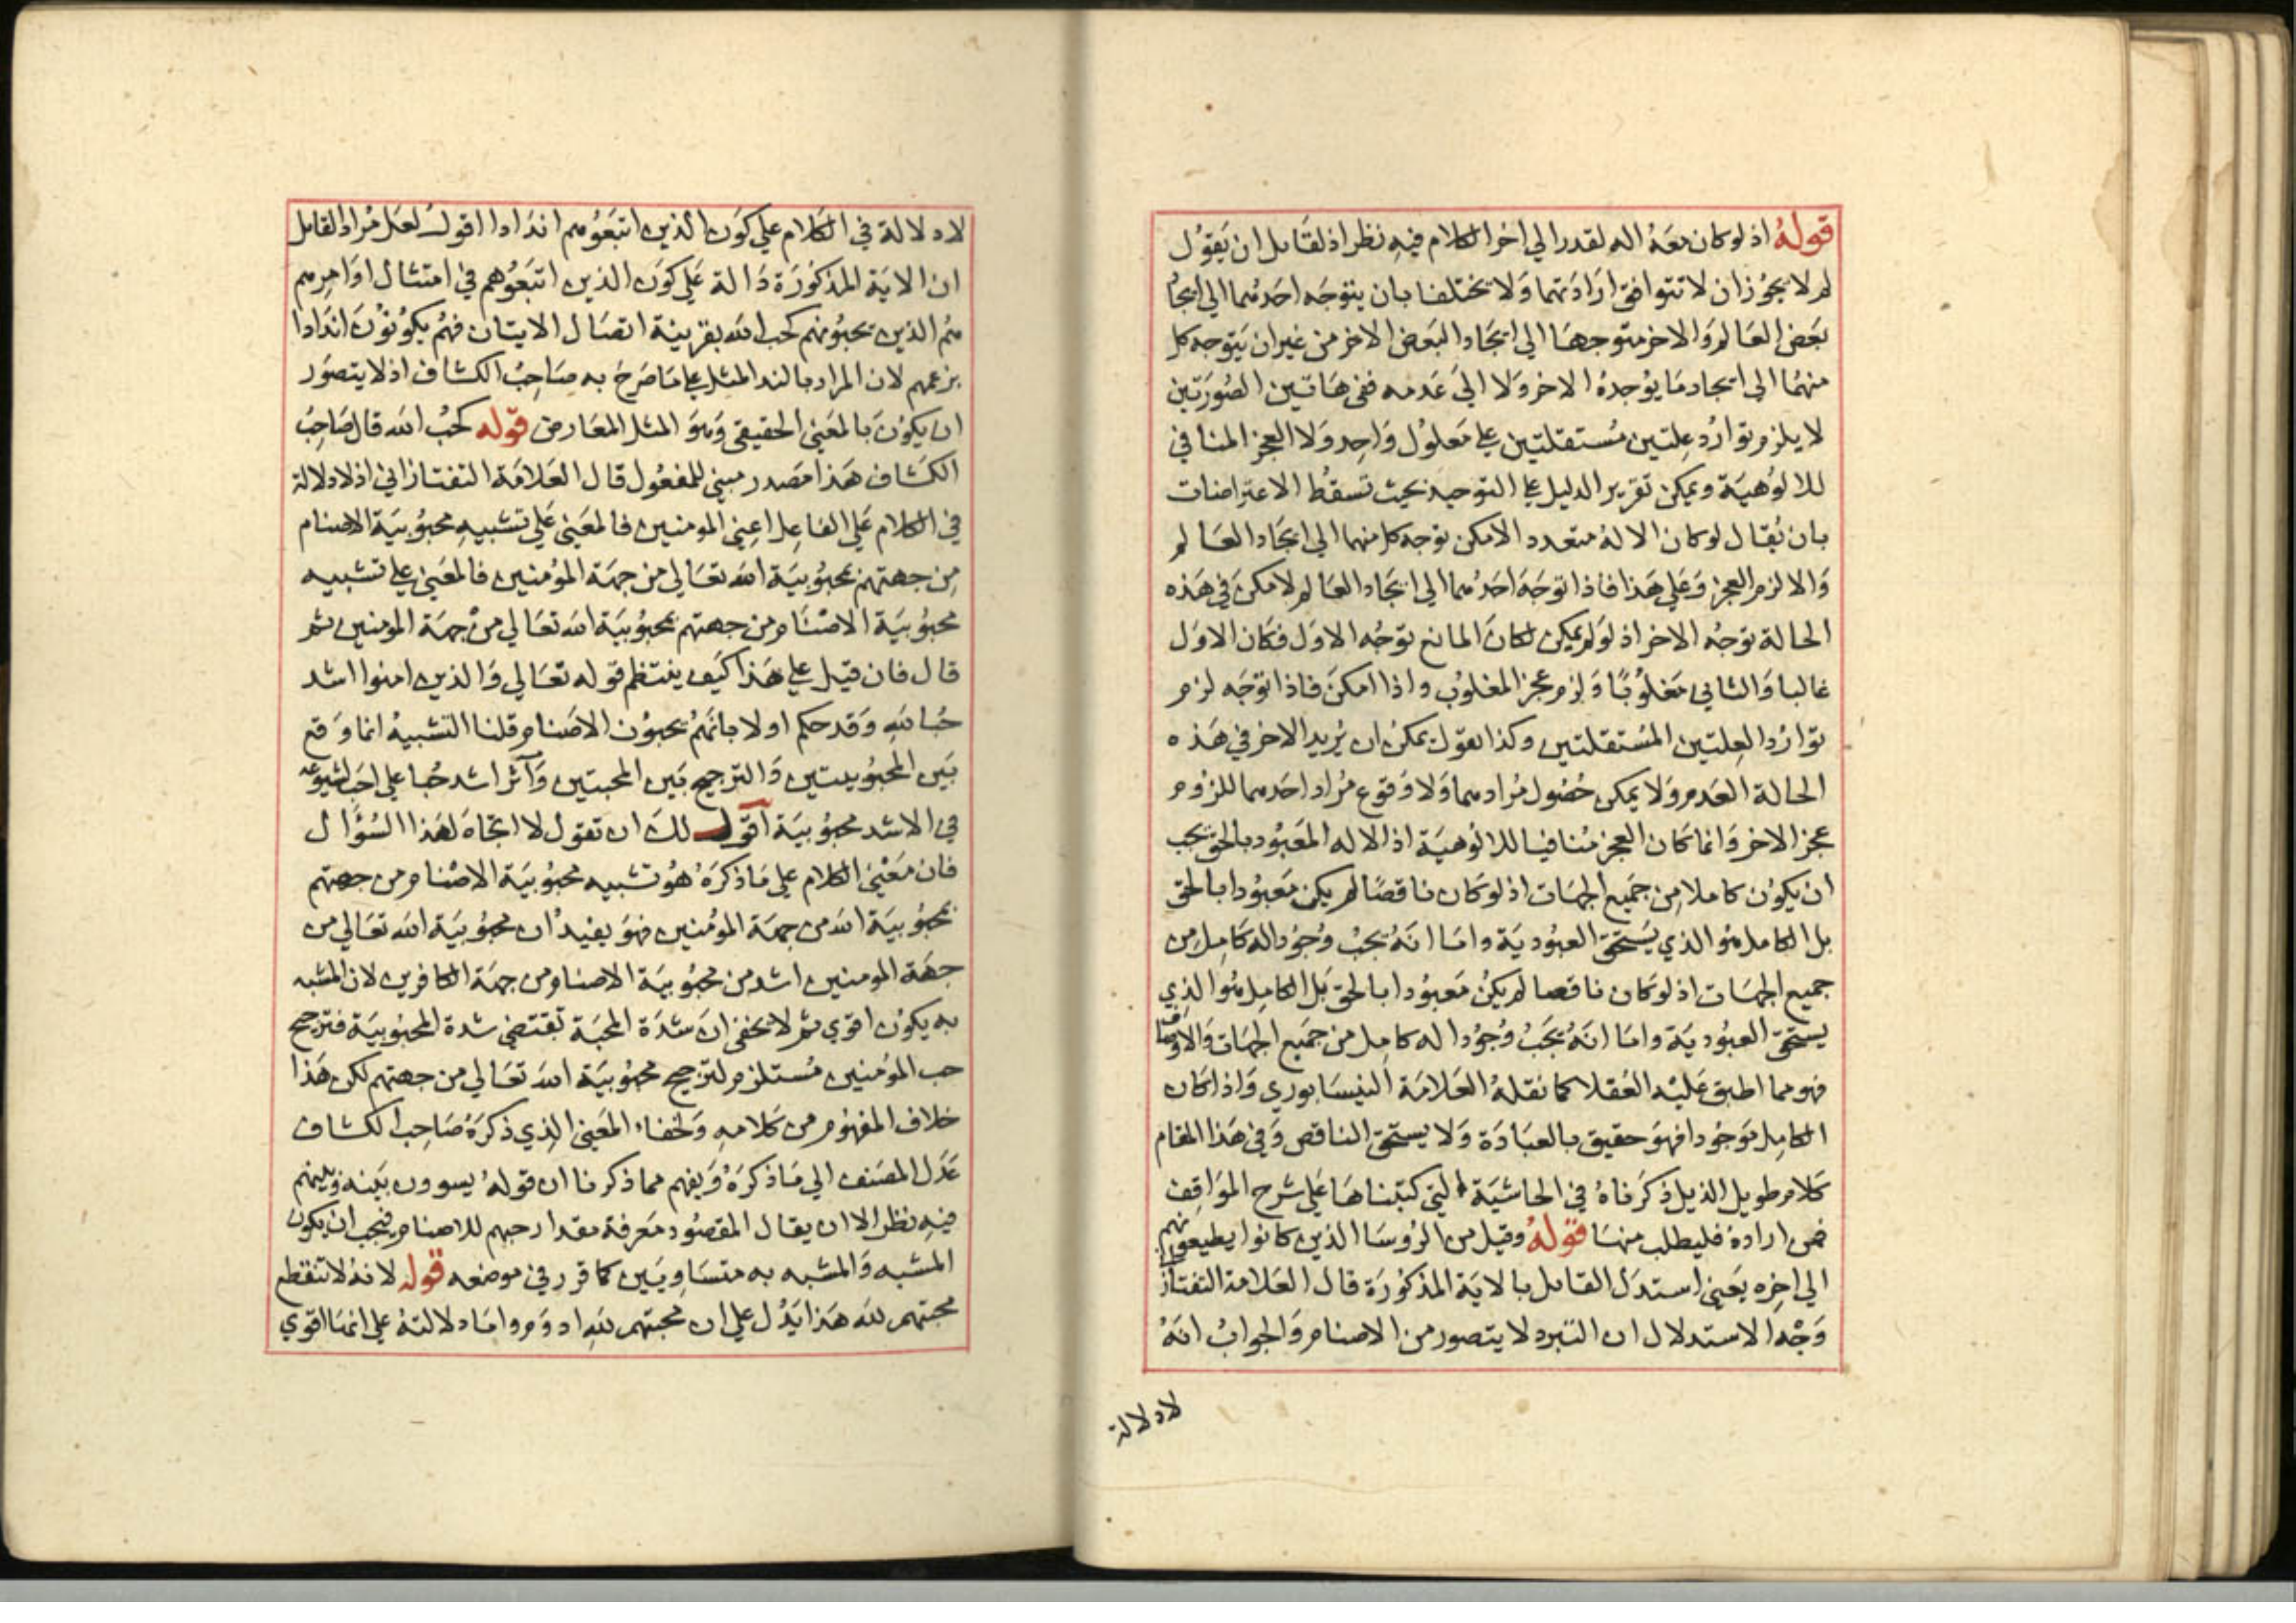 قوله اذ لو كان معه اله لقدر الي اخر الكلام فيه نظر اذ لقائل ان يقول
لم لا يجوز ان لا تتوافق ارادتهما ولا يختلفا بان يتوجه احدهما الي ايجاد
بعض العالم والاخر متوجها الي ايجاد البعض الاخر من غير ان يتوجه كل
منهما الي ايجاد ما يوجده الاخر ولا الي عدمه ففي هاتين الصورتين
لا يلزم توارد علتين مستقلتين علي معلول واحد ولا العجز المنافي
للالوهية ويمكن تقرير الدليل علي التوحيد بحيث تسقط الاعتراضات
بان يقال لو كان الاله متعدد الامكن توجه كل منهما الي ايجاد العالم
والا لزم العجز وعلي هذا فاذا توجه احدهما الي ايجاد العالم لامكن في هذه
الحالة توجه الاخر اذ لو لم يمكن لكان المانع توجه الاول فكان الاول
غالبا والثاني مغلوبا ولزم عجز المغلوب واذا امكن فاذا توجه لزم
توارد العلتين المستقلتين وكذا نقول يمكن ان يريد الاخر في هذه
الحالة العدم ولا يمكن حصول مرادهما ولا وقوع مراد احدهما للزوم
عجز الاخر وانما كان العجز منافيا للالوهية اذ الاله المعبود بالحق يجب
ان يكون كاملا من جميع الجهات اذ لو كان ناقصا لم يكن معبودا بالحق
بل الكامل هو الذي يستحق العبودية واما انه يجب وجود اله كامل من
جميع الجهات اذ لو كان ناقصا لم يكن معبودا بالحق بل الكامل هو الذي
يستحق العبودية واما انه يجب وجود اله كامل من جميع الجهات والاوصاف
فهو مما اطبق عليه العقلا كما نقله العلامة النيسابوري واذا كان
الكامل موجودا فهو حقيق بالعبادة ولا يستحق الناقص وفي هذا المقام
كلام طويل الذيل ذكرناه في الحاشية التي كتبناها علي شرح المواقف
فمن اراده فليطلب منها قوله وقيل من الروسا الذين كانوا يطيعونهم
الي اخره يعني استدل القائل بالاية المذكورة قال العلامة التفتازاني
وجه الاستدلال ان التبرء لا يتصور من الاصنام والجواب انه
لا دلالة
لا دلالة في الكلام علي كون الذين اتبعوهم اندادا اقول لعل مراد القائل
ان الاية المذكورة دالة علي كون الذين اتبعوهم في امتثال اوامرهم
هم الذين يحبونهم كحب الله بقرينة اتصال الايتان فهم يكونون اندادا
بزعمهم لان المراد بالند المثل علي ما صرح به صاحب الكشاف اذ لا يتصور
ان يكون بالمعني الحقيقي وهو المثل المعارض قوله كحب الله قال صاحب
الكشاف هذا مصدر مبني للمفعول قال العلامة التفتازاني اذ لا دلالة
في الكلام علي الفاعل اعني المومنين فالمعني علي تشبيه محبوبية الاصنام
من جهتهم بمحبوبية الله تعالي من جهة المؤمنين فالمعني علي تشبيه
محبوبية الاصنام من جهتهم بمحبوبية الله تعالي من جهة المومنين ثم
قال فان قيل علي هذا كيف ينتظم قوله تعالي والذين امنوا اشد
حبا لله وقد حكم اولا بانهم يحبون الاصنام قلنا التشبيه انما وقع
بين المحبوبيتين والترجيح بين المحبتين وآثر اشد حبا علي احب لشيوعه
في الاشد محبوبية اقول لك ان تقول لا اتجاه لهذا السؤال
فان معني الكلام علي ما ذكره هو تشبيه محبوبية الاصنام من جهتهم
بمحبوبية الله من جهة المؤمنين فهو يفيد ان محبوبية الله تعالي من
جهة المومنين اشد من محبوبية الاصنام من جهة الكافرين لان المشبه
به يكون اقوي ثم لا يخفي ان شدة المحبة تقتضي شدة المحبوبية فترجيح
حب المؤمنين مستلزم لترجيح محبوبية الله تعالي من جهتهم لكن هذا
خلاف المفهوم من كلامه ولخفاء المعني الذي ذكره صاحب الكشاف
عدل المصنف الي ما ذكره ويفهم مما ذكرنا ان قوله يسوون بينه وبينهم
فيه نظر الا ان يقال المقصود معرفة مقدار حبهم للاصنام فيجب ان يكون
المشبه والمشبه به متساويين كما قرر في موضعه قوله لانه لا تنقطع
محبتهم لله هذا يدل علي ان محبتهم لله ادوم واما دلالته علي انها اقوي